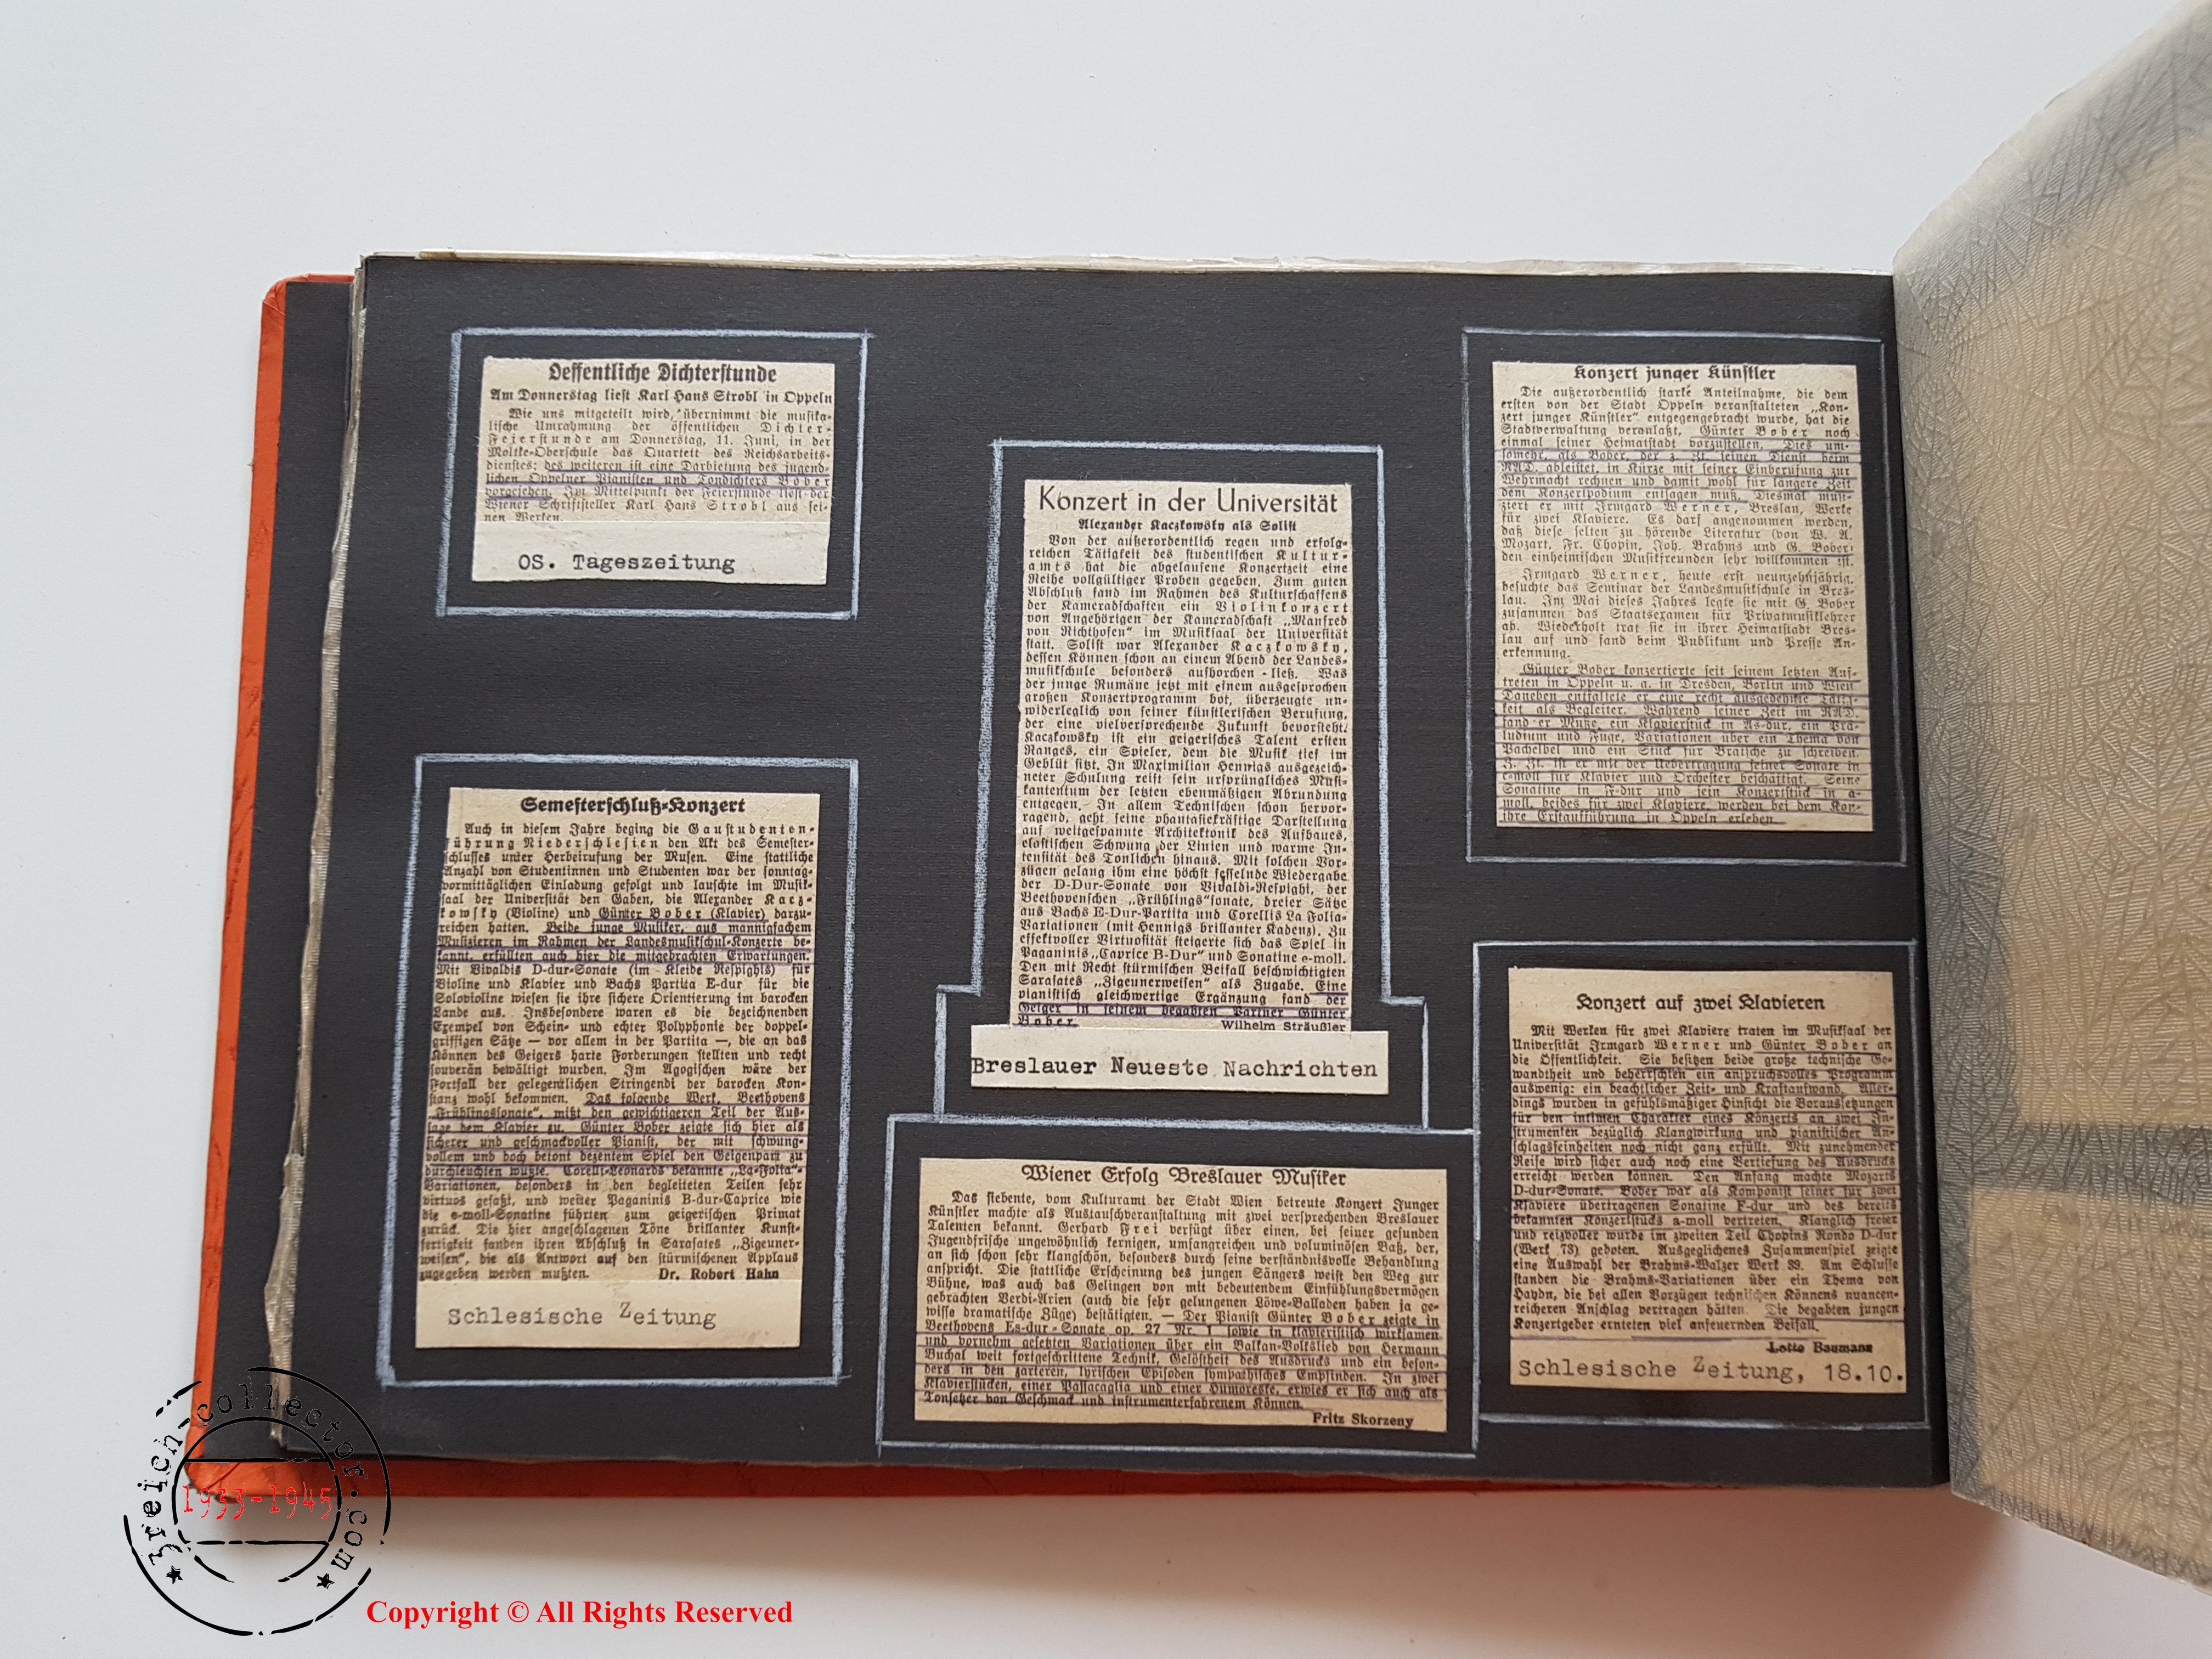 Oeffentliche Dichterstunde
Am Donnerstag liest Karl Hans Strobl in Oppeln
Wie uns mitgeteilt wird, übernimmt die musika-
lische Umrahmung der öffentlichen Dichter-
Feierstunde am Donnerstag, 11. Juni, in der
Moltke-Oberschule das Quartett des Reichsarbeits-
dienstes; des weiteren ist eine Darbietung des jugend-
lichen Oppelner Pianisten und Tondichters Bober
vorgesehen. Im Mittelpunkt der Feierstunde liest der
Wiener Schriftsteller Karl Hans Strobl aus sei-
nen Werken.
OS. Tageszeitung
Semesterschluß-Konzert
Auch in diesem Jahre beging die Gaustudenten-
führung Niederschlesien den Akt des Semester-
schlusses unter Herbeirufung der Musen. Eine stattliche
Anzahl von Studentinnen und Studenten war der sonntag-
vormittäglichen Einladung gefolgt und lauschte im Musik-
saal der Universität den Gaben, die Alexander Kacz-
kowsky (Violine) und Günter Bober (Klavier) darzu-
reichen hatten. Beide junge Musiker, aus mannigfachem
Musizieren im Rahmen der Landesmusikschul-Konzerte be-
kannt, erfüllten auch hier die mitgebrachten Erwartungen.
Mit Vivaldis D-dur-Sonate (im Kleide Respighis) für
Violine und Klavier und Bachs Partita E-dur für die
Solovioline wiesen sie ihre sichere Orientierung im barocken
Lande aus. Insbesondere waren es die bezeichnenden
Exempel von Schein- und echter Polyphonie der doppel-
griffigen Sätze — vor allem in der Partita —, die an das
Können des Geigers harte Forderungen stellten und recht
souverän bewältigt wurden. Im Agogischen wäre der
Fortfall der gelegentlichen Stringendi der barocken Kon-
stanz wohl bekommen. Das folgende Werk, Beethovens
„Frühlingssonate“, mißt den gewichtigeren Teil der Aus-
sage dem Klavier zu. Günter Bober zeigte sich hier als
sicherer und geschmackvoller Pianist, der mit schwung-
vollem und doch betont dezentem Spiel den Geigenpart zu
durchleuchten wußte. Corelli-Leonards bekannte „La-Folia“-
Variationen, besonders in den begleiteten Teilen sehr
virtuos gefaßt, und weiter Paganinis B-dur-Caprice wie
die e-moll-Sonatine führten zum geigerischen Primat
zurück. Die hier angeschlagenen Töne brillanter Kunst-
fertigkeit fanden ihren Abschluß in Sarasates „Zigeuner-
weisen“, die als Antwort auf den stürmischen Applaus
zugegeben werden mußten. Dr. Robert Hahn
Schlesische Zeitung
Konzert in der Universität
Alexander Kaczkowsky als Solist
Von der außerordentlich regen und erfolg-
reichen Tätigkeit des studentischen Kultur-
amts hat die abgelaufene Konzertzeit eine
Reihe vollgültiger Proben gegeben. Zum guten
Abschluß fand im Rahmen des Kulturschaffens
der Kameradschaften ein Violinkonzert
von Angehörigen der Kameradschaft „Manfred
von Richthofen“ im Musiksaal der Universität
statt. Solist war Alexander Kaczkowsky,
dessen Können schon an einem Abend der Landes-
musikschule besonders aufhorchen ließ. Was
der junge Rumäne jetzt mit einem ausgesprochen
großen Konzertprogramm bot, überzeugte un-
widerleglich von seiner künstlerischen Berufung,
der eine vielversprechende Zukunft bevorsteht.
Kaczkowsky ist ein geigerisches Talent ersten
Ranges, ein Spieler, dem die Musik tief im
Geblüt sitzt. In Maximilian Hennigs ausgezeich-
neter Schulung reift sein ursprüngliches Musi-
kantentum der letzten ebenmäßigen Abrundung
entgegen. In allem Technischen schon hervor-
ragend, geht seine phantasiekräftige Darstellung
auf weitgespannte Architektonik des Aufbaues,
elastischen Schwung der Linien und warme In-
tensität des Tonlichen hinaus. Mit solchen Vor-
zügen gelang ihm eine höchst fesselnde Wiedergabe
der D-Dur-Sonate von Vivaldi-Respighi, der
Beethovenschen „Frühlings“sonate, dreier Sätze
aus Bachs E-Dur-Partita und Corellis La Folia-
Variationen (mit Hennigs brillanter Kadenz). Zu
effektvoller Virtuosität steigerte sich das Spiel in
Paganinis „Caprice B-Dur“ und Sonatine e-moll.
Den mit Recht stürmischen Beifall beschwichtigten
Sarasates „Zigeunerweisen“ als Zugabe. Eine
pianistisch gleichwertige Ergänzung fand der
Geiger in seinem begabten Partner Günter
Bober. Wilhelm Sträußler
Breslauer Neueste Nachrichten
Wiener Erfolg Breslauer Musiker
Das siebente, vom Kulturamt der Stadt Wien betreute Konzert Junger
Künstler machte als Austauschveranstaltung mit zwei versprechenden Breslauer
Talenten bekannt. Gerhard Frei verfügt über einen, bei seiner gesunden
Jugendfrische ungewöhnlich kernigen, umfangreichen und voluminösen Baß, der,
an sich schon sehr klangschön, besonders durch seine verständnisvolle Behandlung
anspricht. Die stattliche Erscheinung des jungen Sängers weist den Weg zur
Bühne, was auch das Gelingen von mit bedeutendem Einfühlungsvermögen
gebrachten Verdi-Arien (auch die sehr gelungenen Löwe-Balladen haben ja ge-
wisse dramatische Züge) bestätigten. — Der Pianist Günter Bober zeigte in
Beethovens Es-dur-Sonate op. 27 Nr. 1 sowie in klavieristisch wirksamen
und vornehm gesetzten Variationen über ein Balkan-Volkslied von Hermann
Buchal weit fortgeschrittene Technik, Gelöstheit des Ausdrucks und ein beson-
ders in den zarteren, lyrischen Episoden sympathisches Empfinden. In zwei
Klavierstücken, einer Passacaglia und einer Humoreske, erwies er sich auch als
Tonsetzer von Geschmack und instrumenterfahrenem Können.
Fritz Skorzeny
Konzert junger Künstler
Die außerordentlich starke Anteilnahme, die dem
ersten von der Stadt Oppeln veranstalteten „Kon-
zert junger Künstler“ entgegengebracht wurde, hat die
Stadtverwaltung veranlaßt, Günter Bober noch
einmal seiner Heimatstadt vorzustellen. Dies um-
somehr, als Bober, der z. Zt. seinen Dienst beim
RAD. ableistet, in Kürze mit seiner Einberufung zur
Wehrmacht rechnen und damit wohl für längere Zeit
dem Konzertpodium entsagen muß. Diesmal musi-
ziert er mit Irmgard Werner, Breslau, Werke
für zwei Klaviere. Es darf angenommen werden,
daß diese selten zu hörende Literatur (von W. A.
Mozart, Fr. Chopin, Joh. Brahms und G. Bober)
den einheimischen Musikfreunden sehr willkommen ist.
Irmgard Werner, heute erst neunzehnjährig,
besuchte das Seminar der Landesmusikschule in Bres-
lau. Im Mai dieses Jahres legte sie mit G. Bober
zusammen das Staatsexamen für Privatmusiklehrer
ab. Wiederholt trat sie in ihrer Heimatstadt Bres-
lau auf und fand beim Publikum und Presse An-
erkennung.
Günter Bober konzertierte seit seinem letzten Auf-
treten in Oppeln u. a. in Dresden, Berlin und Wien.
Daneben entfaltete er eine recht ausgedehnte Tätig-
keit als Begleiter. Während seiner Zeit im RAD.
fand er Muße, ein Klavierstück in As-dur, ein Prä-
ludium und Fuge, Variationen über ein Thema von
Pachelbel und ein Stück für Bratsche zu schreiben.
Z. Zt. ist er mit der Uebertragung seiner Sonate in
c-moll für Klavier und Orchester beschäftigt. Seine
Sonatine in F-dur und sein Konzertstück in a-
moll, beides für zwei Klaviere, werden bei dem Kon-
ihre Erstaufführung in Oppeln erleben.
Konzert auf zwei Klavieren
Mit Werken für zwei Klaviere traten im Musiksaal der
Universität Irmgard Werner und Günter Bober an
die Öffentlichkeit. Sie besitzen beide große technische Ge-
wandtheit und beherrschten ein anspruchsvolles Programm
auswendig: ein beachtlicher Zeit- und Kraftaufwand. Aller-
dings wurden in gefühlsmäßiger Hinsicht die Voraussetzungen
für den intimen Charakter eines Konzerts an zwei In-
strumenten bezüglich Klangwirkung und pianistischer An-
schlagsfeinheiten noch nicht ganz erfüllt. Mit zunehmender
Reife wird sicher auch noch eine Vertiefung des Ausdrucks
erreicht werden können. Den Anfang machte Mozarts
D-dur-Sonate. Bober war als Komponist seiner für zwei
Klaviere übertragenen Sonatine F-dur und des bereits
bekannten Konzertstücks a-moll vertreten. Klanglich freier
und reizvoller wurde im zweiten Teil Chopins Rondo D-dur
(Werk 73) geboten. Ausgeglichenes Zusammenspiel zeigte
eine Auswahl der Brahms-Walzer Werk 39. Am Schlusse
standen die Brahms-Variationen über ein Thema von
Haydn, die bei allen Vorzügen technischen Könnens nuancen-
reicheren Anschlag vertragen hätten. Die begabten jungen
Konzertgeber ernteten viel anfeuernden Beifall.
Lotte Baumann
Schlesische Zeitung, 18.10.
3reich-collector.com
1933-1945
Copyright © All Rights Reserved